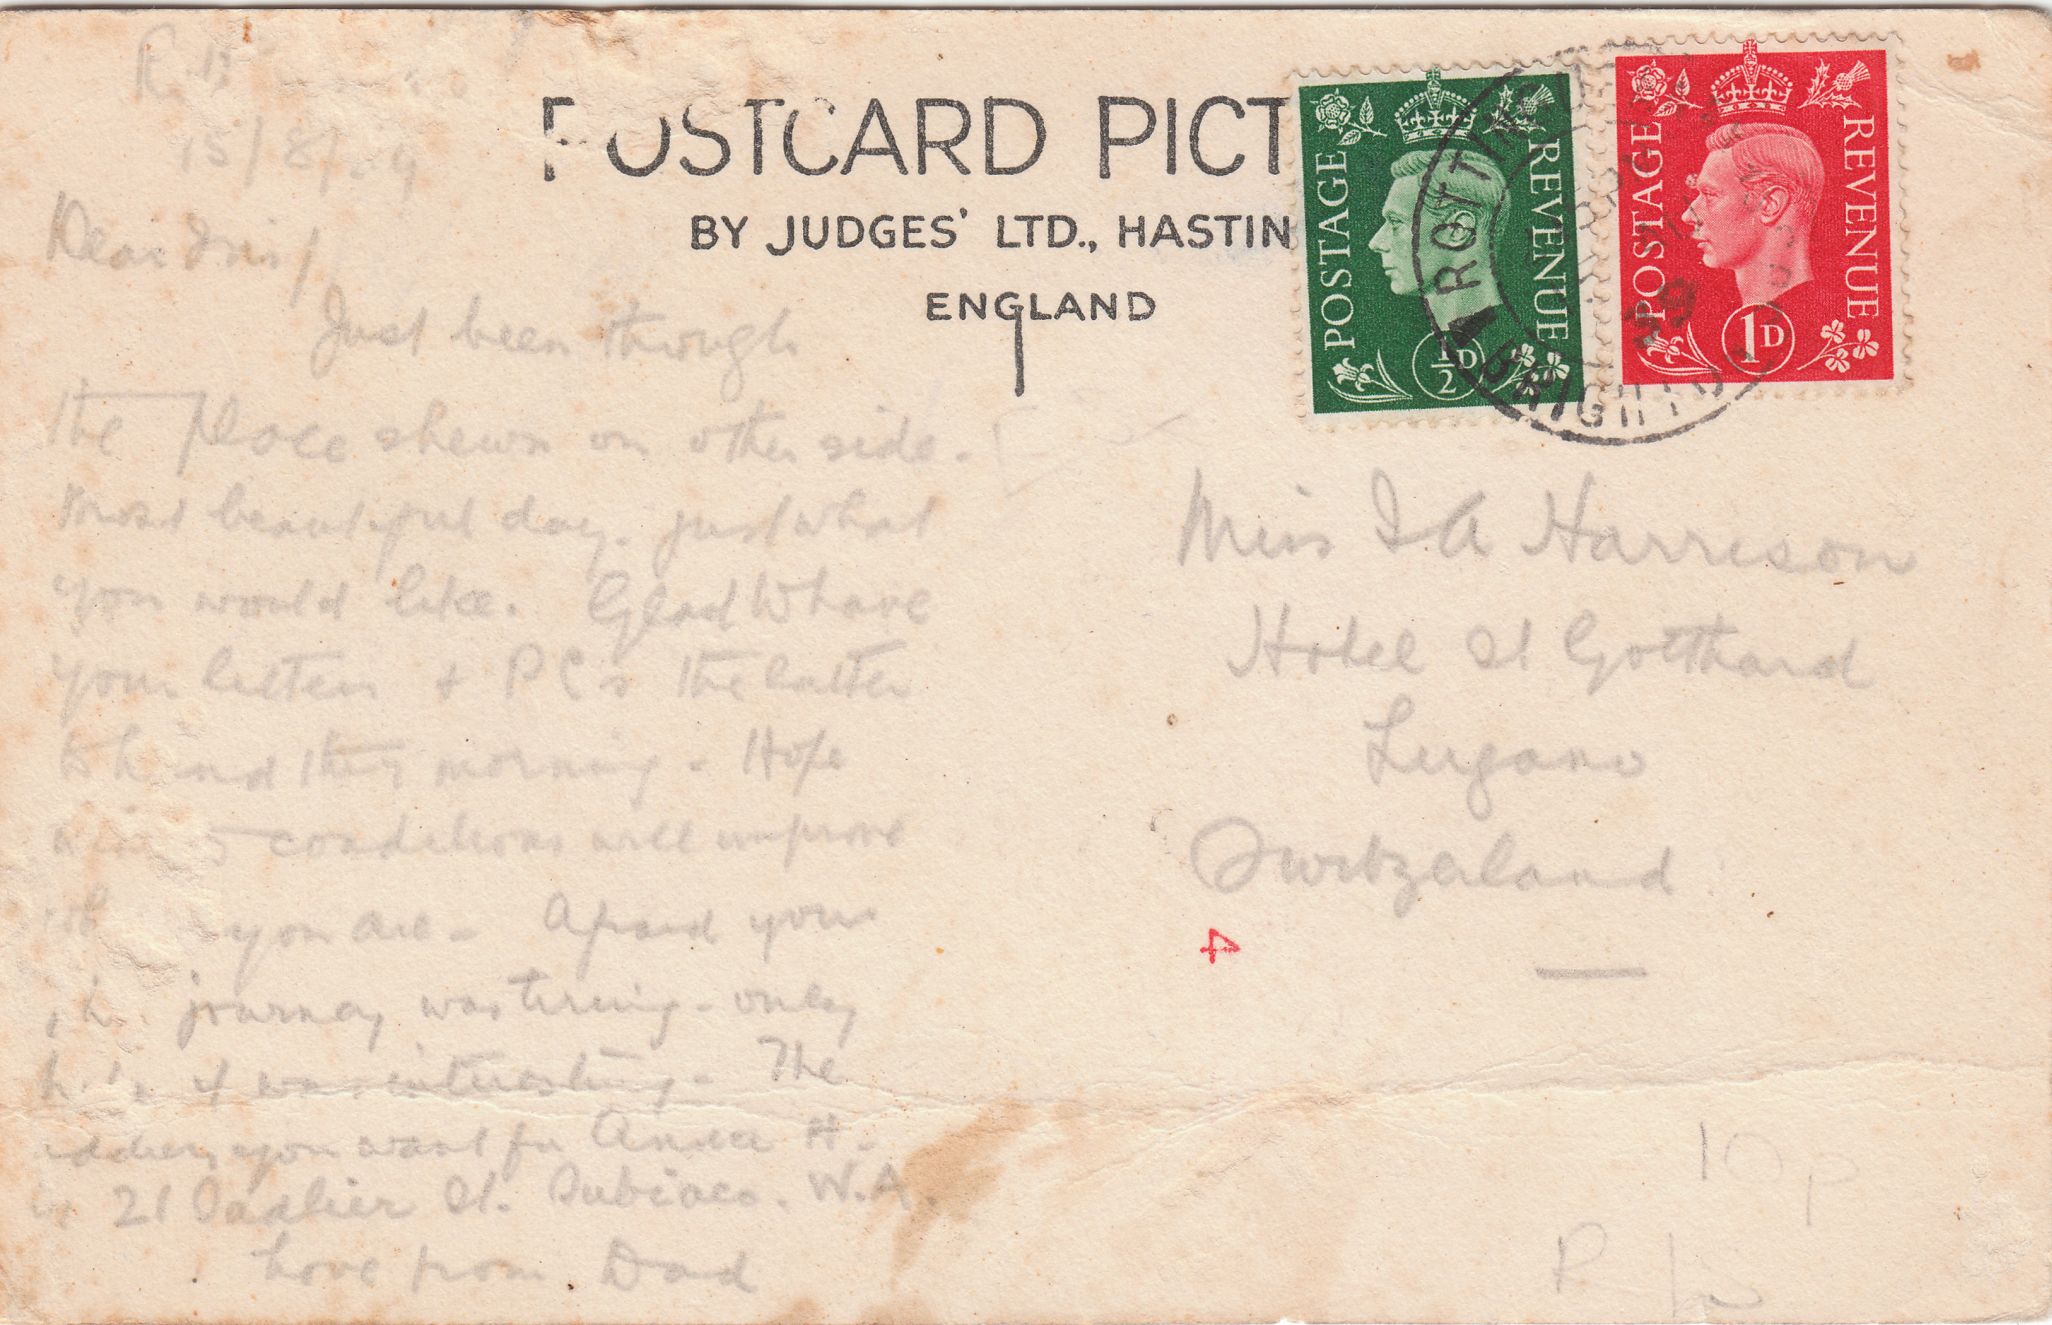 15/8/
POSTCARD PICT
BY JUDGES' LTD., HASTIN
ENGLAND
POSTAGE REVENUE
½D
POSTAGE REVENUE
1D
ROTTING
BRIGHTO
Dear Iris/
Just been through
the place shewn on other side.
Most beautiful day. just what
you would like. Glad to have
your letters & PCs the latter
to hand this morning - Hope
conditions will improve
you are - Afraid your
journey was tiring - only
if was interesting - The
address you want for H.
21 Sadlier St. Subiaco. W.A.
Love from Dad
Miss I A Harrison
Hotel St Gotthard
Lugano
Switzerland
4
10p
P